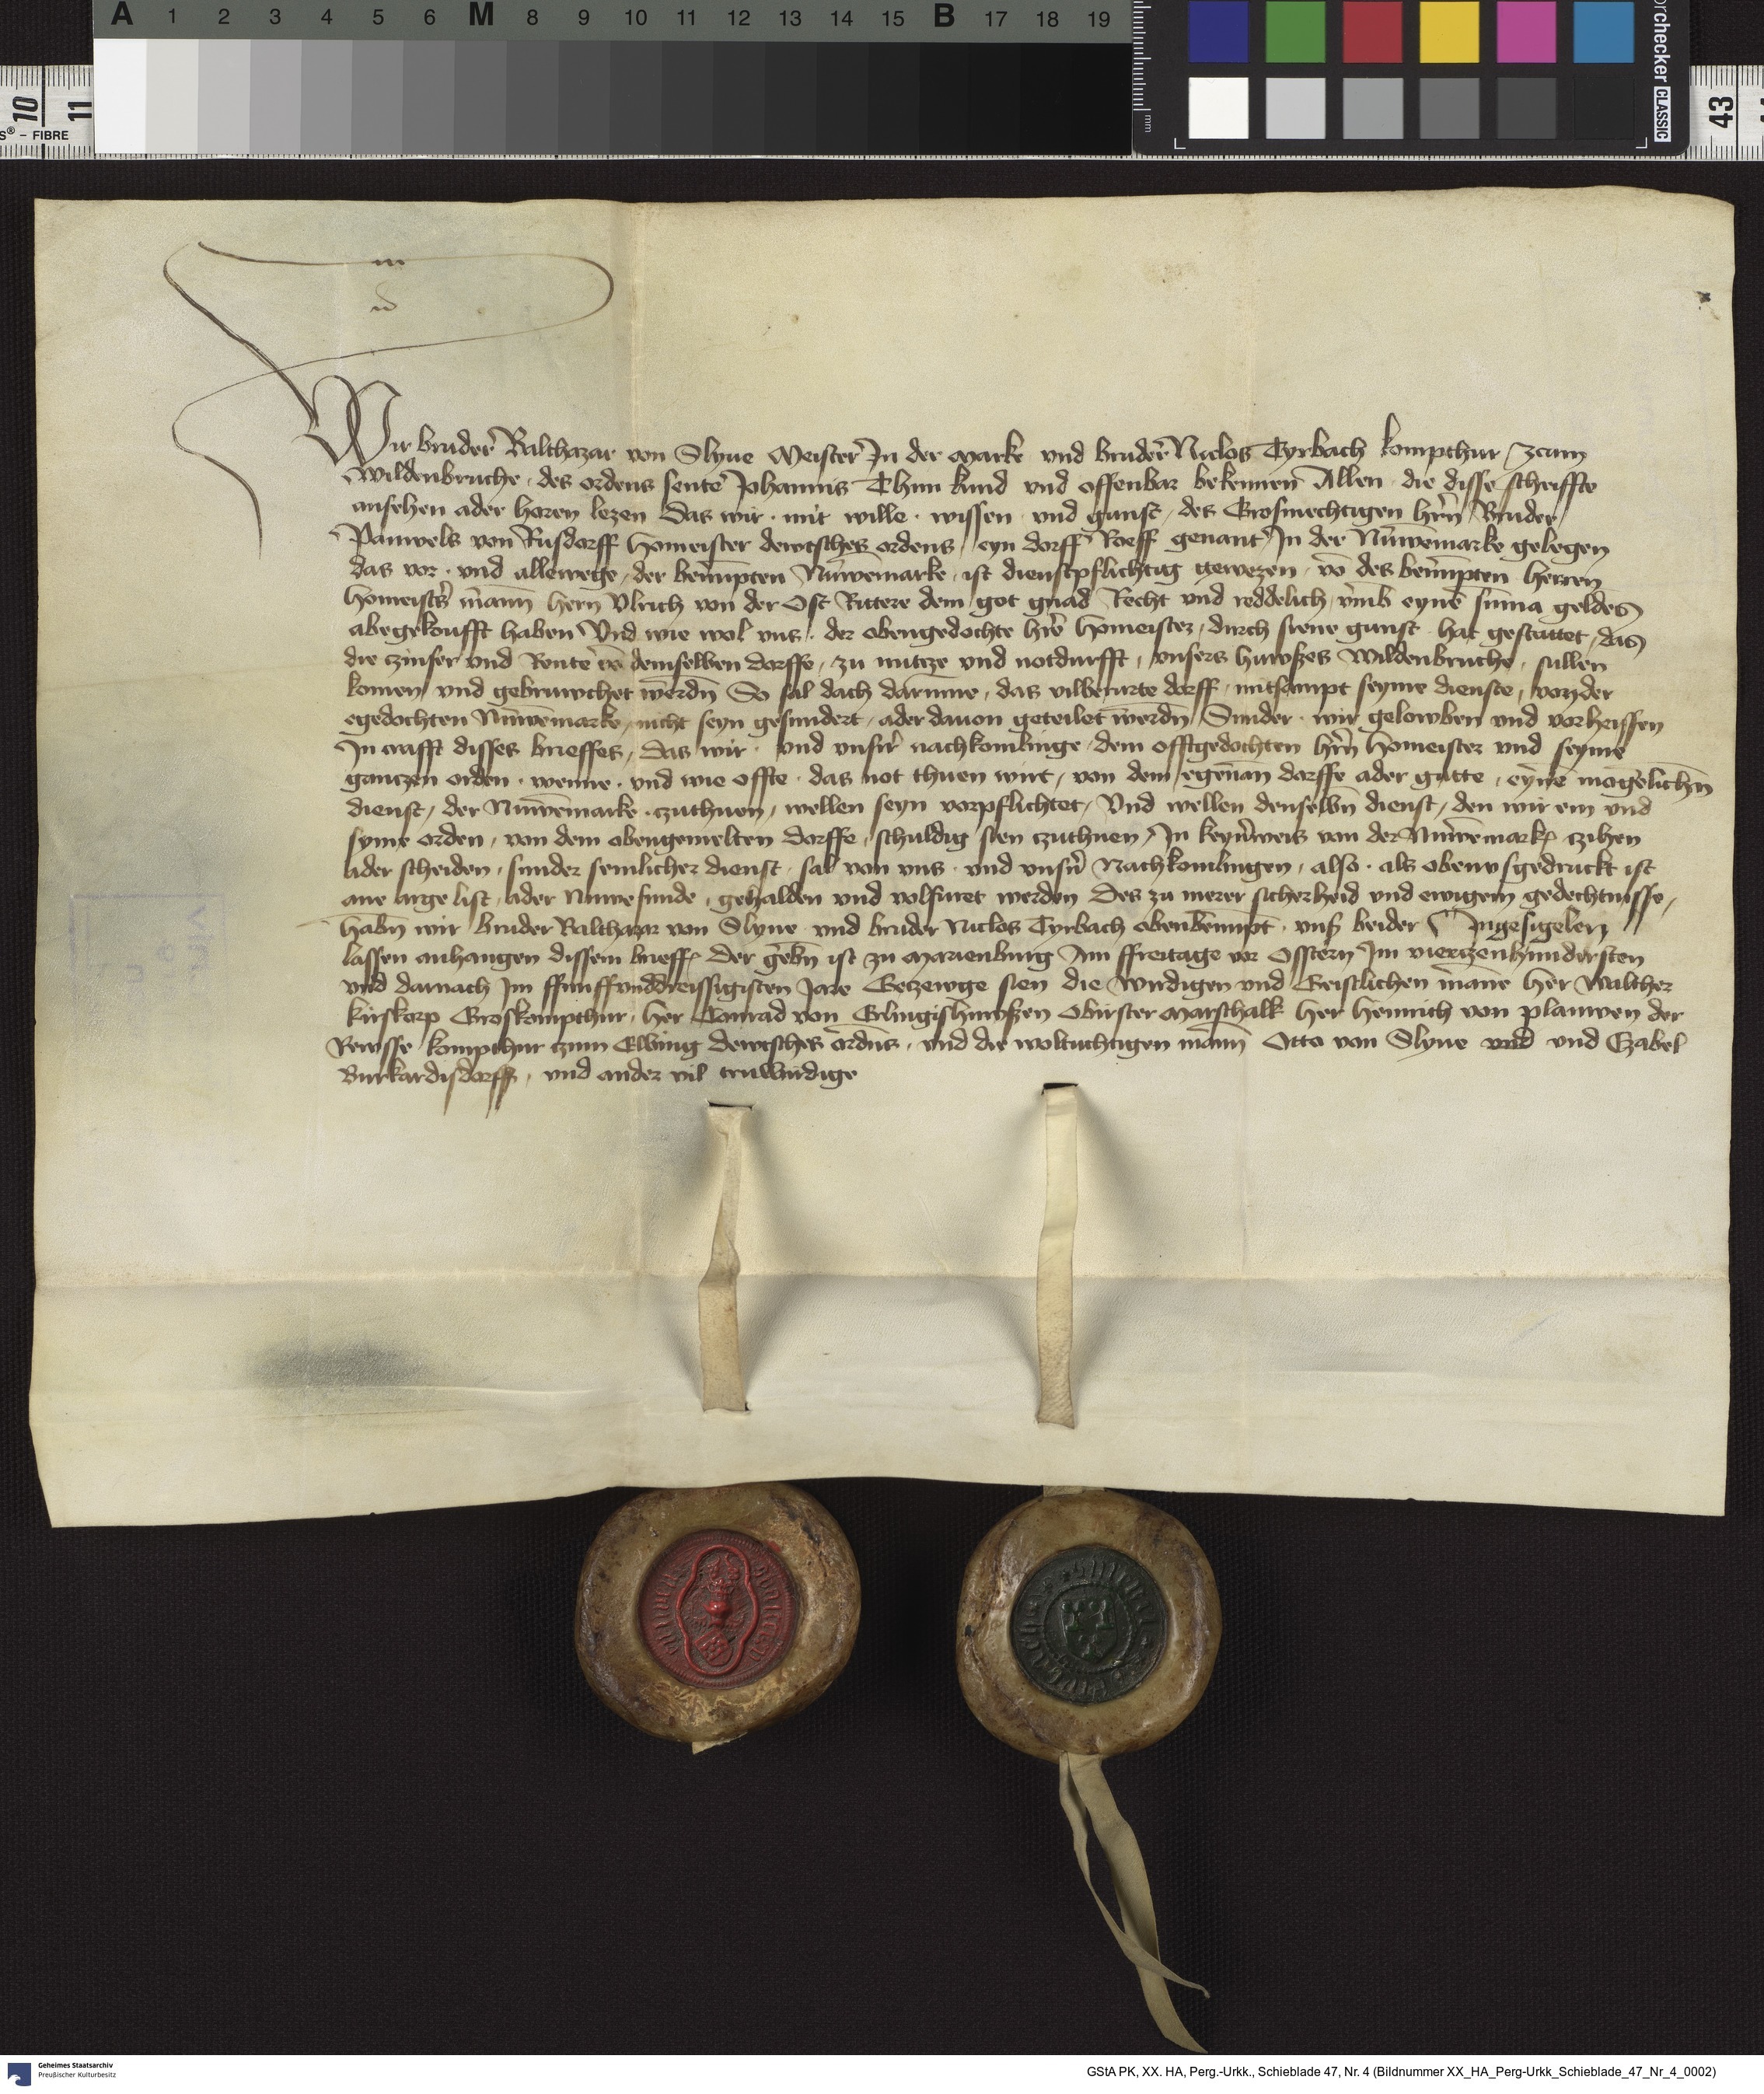 A 1 2 3 4 5 6 M 8 9 10 11 12 13 14 15 B 17 18 19
10 11
S® – FIBRE
mm
orchecker CLASSIC
43
Wir bruder Balthazar von Slyne Meister In der Marke und bruder Niclos Tyrbach kompthur zcum
Wildenbruche des ordens sente Johannis Thun kund und offenbar bekennen Allen die disse schriffte
ansehen ader horen lezen Das wir mit wille wissen und gunst des Grosmechtigen hrn Bruder
Pauwels von Rusdorff Homeister dewtsches ordens eyn dorff Roeff genant In der Nuwemarke gelegen
das vor und allewege der benumpten Nuwemarke ist dienstpflichtig gewezen vo des benumpten herren
Homeisters mann hern Ulrich von der Ost Rittere dem got gnad Recht und reddelich umb eyne summa geldes
abegekoufft haben Und wie wol uns der obengedochte hre Homeister durch siene gunst hat gestattet das
die czinser und Rente vo demselben dorffe zu nutcze und notdurfft unsers huwßes Wildenbruche sullen
komen und gebruwchet werdn So sal dach darumme das vilberurte dorff mitsampt seyme dienste von der
egedochten Nuwemarke nicht seyn gesundert ader davon geteilet werdn Sunder wir gelowben und vorheissen
In crafft disses brieffes das wir und unsir nachkomlinge dem offtgedochten hrn Homeister und seyme
gantczen orden wenne und wie offte das not thuen wirt von dem egenan dorffe ader gutte eyne mogelichn
dienst der Nuwemarke czuthuen wellen seyn vorpflichtet Und wellen denselbn dienst den wir em und
syme orden von dem obengemelten dorffe schuldig sien czuthuen In keynweis von der Nuwemark czihen
ader scheiden sunder semlicher dienst sal von uns und unsrn Nachkomlingen also als obenusgedruckt ist
ane arge list ader Nuwefunde gehalden und volfuret werden Des zu merer sicherheid und ewigem gedechtnisse
habn wir bruder Balthazar von Slyne und bruder Niclos Tyrbach obenbenumpt unß beider Ingesigelen
lassen anhangen dissem brieff Der gebn ist zu Marienburg Am ffreitage vor Osstern Im vierczenhundirsten
und darnach Im ffunffunddreissigisten Jare Geczewge sien die Wirdigen und Geistlichen manne her Walther
kirskorp Groskompthur her Conrad von Erlingishuwßen Obirster Marschalk her Heinrich von plauwen der
Rewsse kompthur czum Elbing dewtsches ordens und die woltuchtigen mann Otto von Slyne und und Czabel
Burkardisdorff und ander vil truwirdige
Geheimes Staatsarchiv
Preußischer Kulturbesitz
GStA PK, XX. HA, Perg.-Urkk., Schieblade 47, Nr. 4 (Bildnummer XX_HA_Perg-Urkk_Schieblade_47_Nr_4_0002)